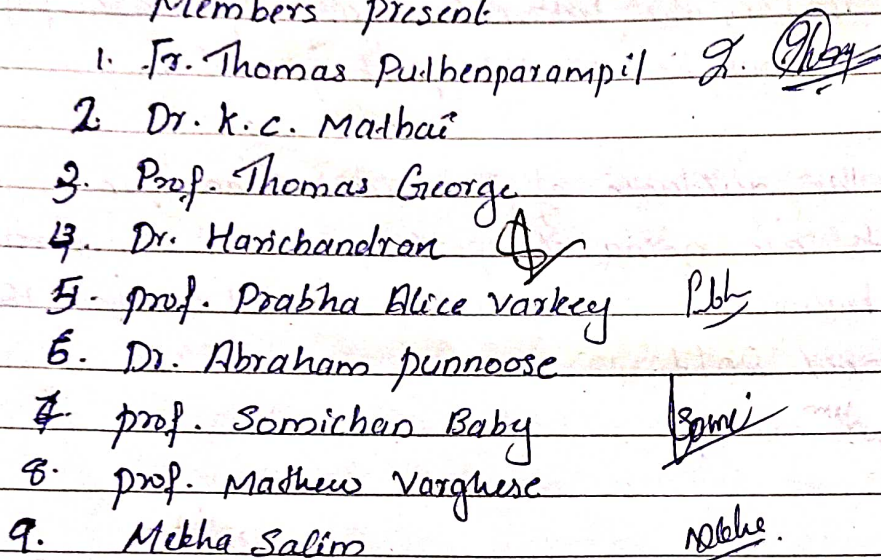 Members present
1. Fr. Thomas Puthenparampil
2. Dr. K. C. Mathai
3. Prof. Thomas George
4. Dr. Harichandran
5. Prof. Prabha Alice Varkey
6. Dr. Abraham punnoose
7. prof. Somichan Baby
8. prof. Mathew Varghese
9. Mekha Salim